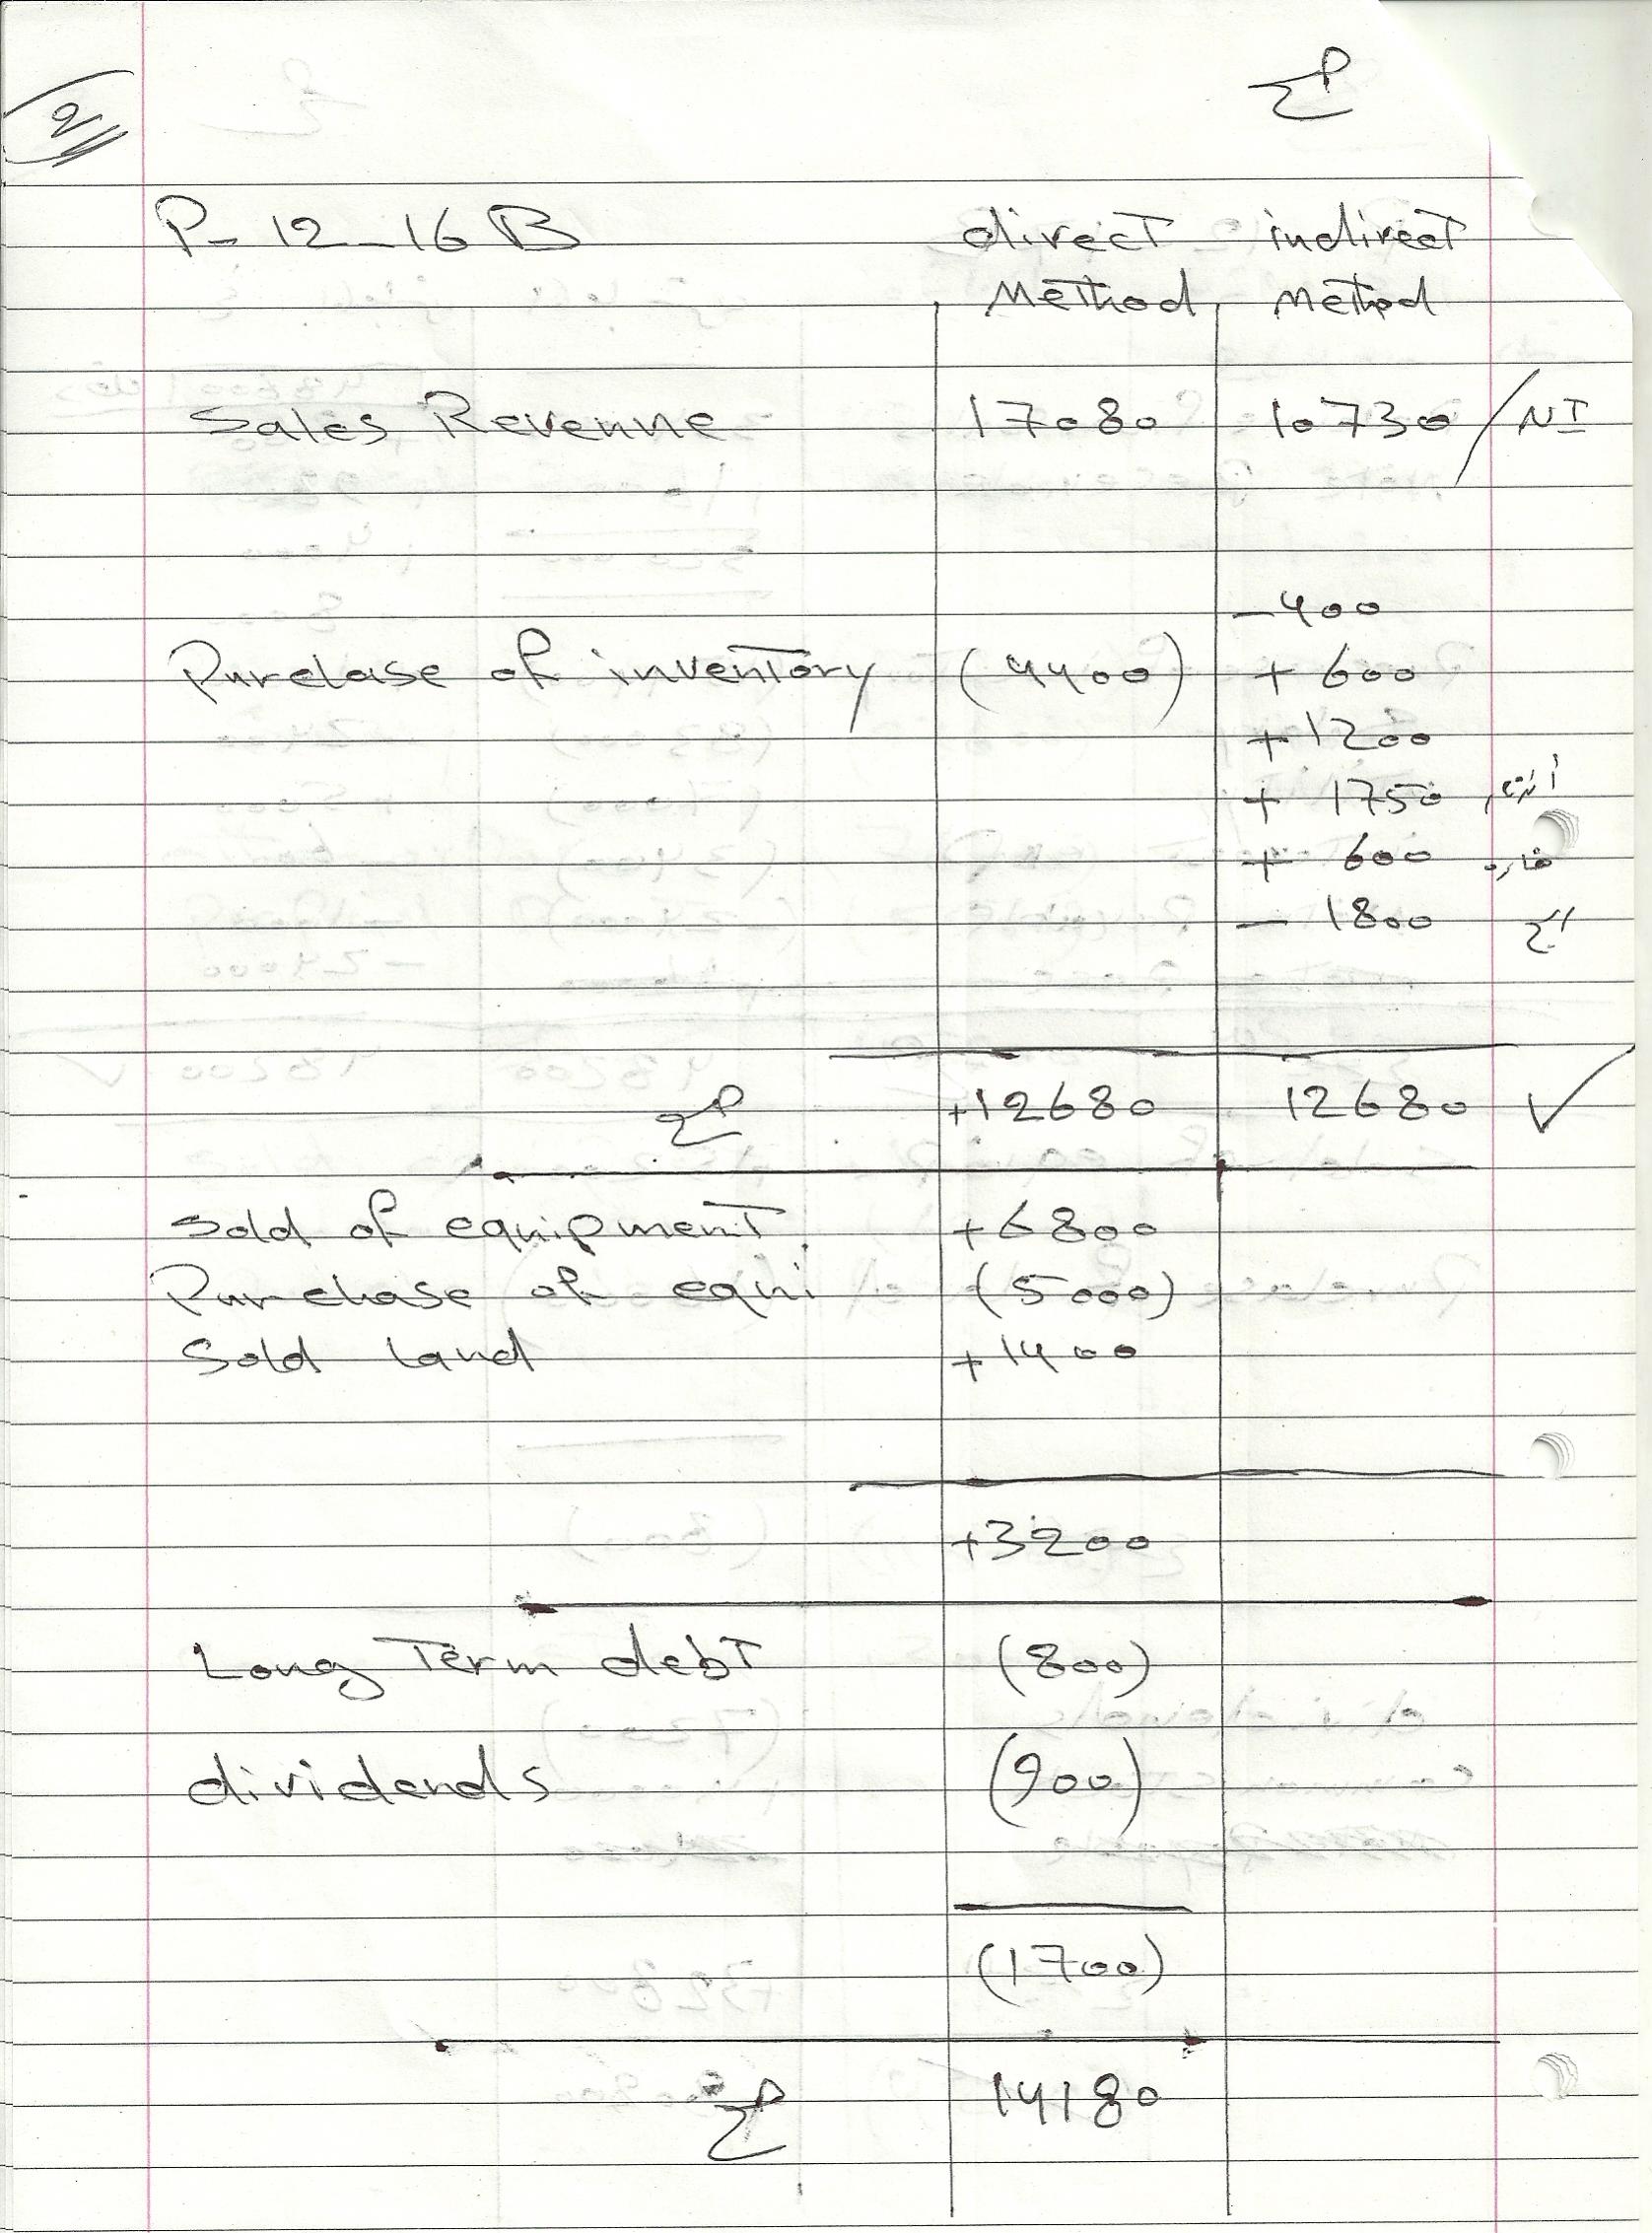 2
P-12-16 B direct indirect
Method Method
Sales Revenue 17080 10730 / NI
-400
Purclase of inventory (4400) + 600
+ 1200
+ 1750
+ 600
- 1800
+12680 12680 ✓
Sold of equipment +6800
Purchase of equi (5000)
Sold Land +1400
+3200
Long Term debt (800)
dividends (900)
(1700)
14180